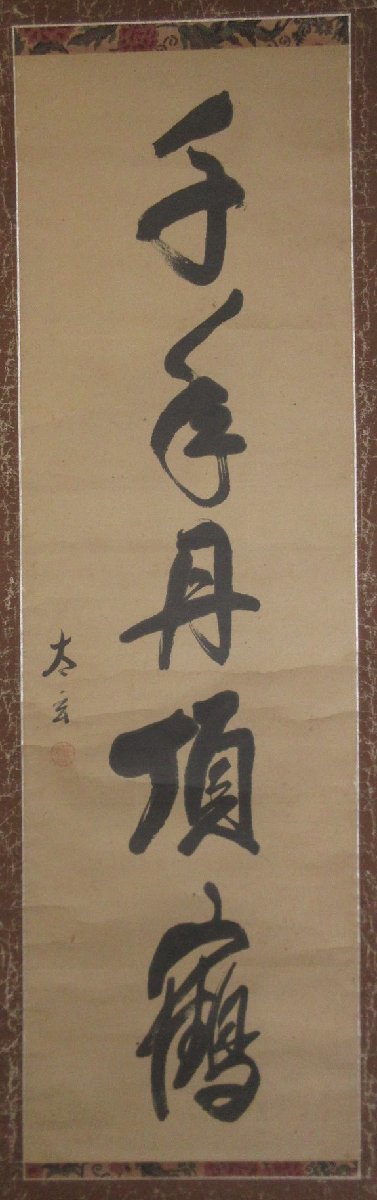 千年丹頂鶴
太玄